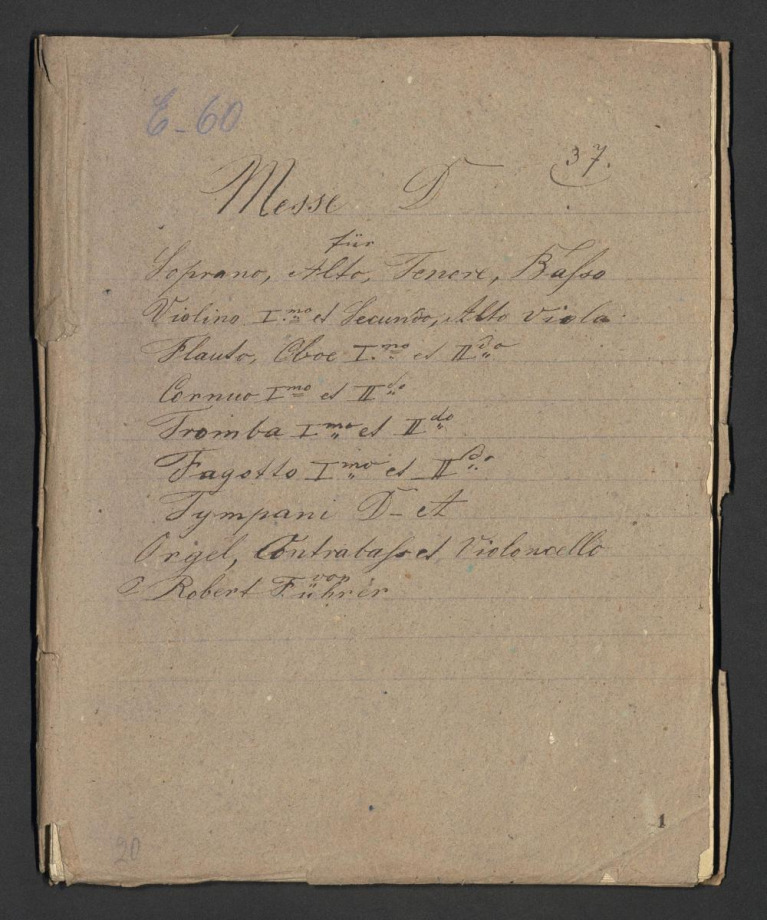 E-60
37.
Messe D
für
Soprano, Alto, Tenore, Baſso
Violino I.mo et Secundo, Alto Viola.
Flauto, Oboe I.mo et IIdo
Cornuo Imo et IIdo
Tromba Imo et IIdo
Fagotto Imo et IIdo
Tympani D-A
Orgel, Contrabaſs et Violoncello
von
Robert Führer
1
20